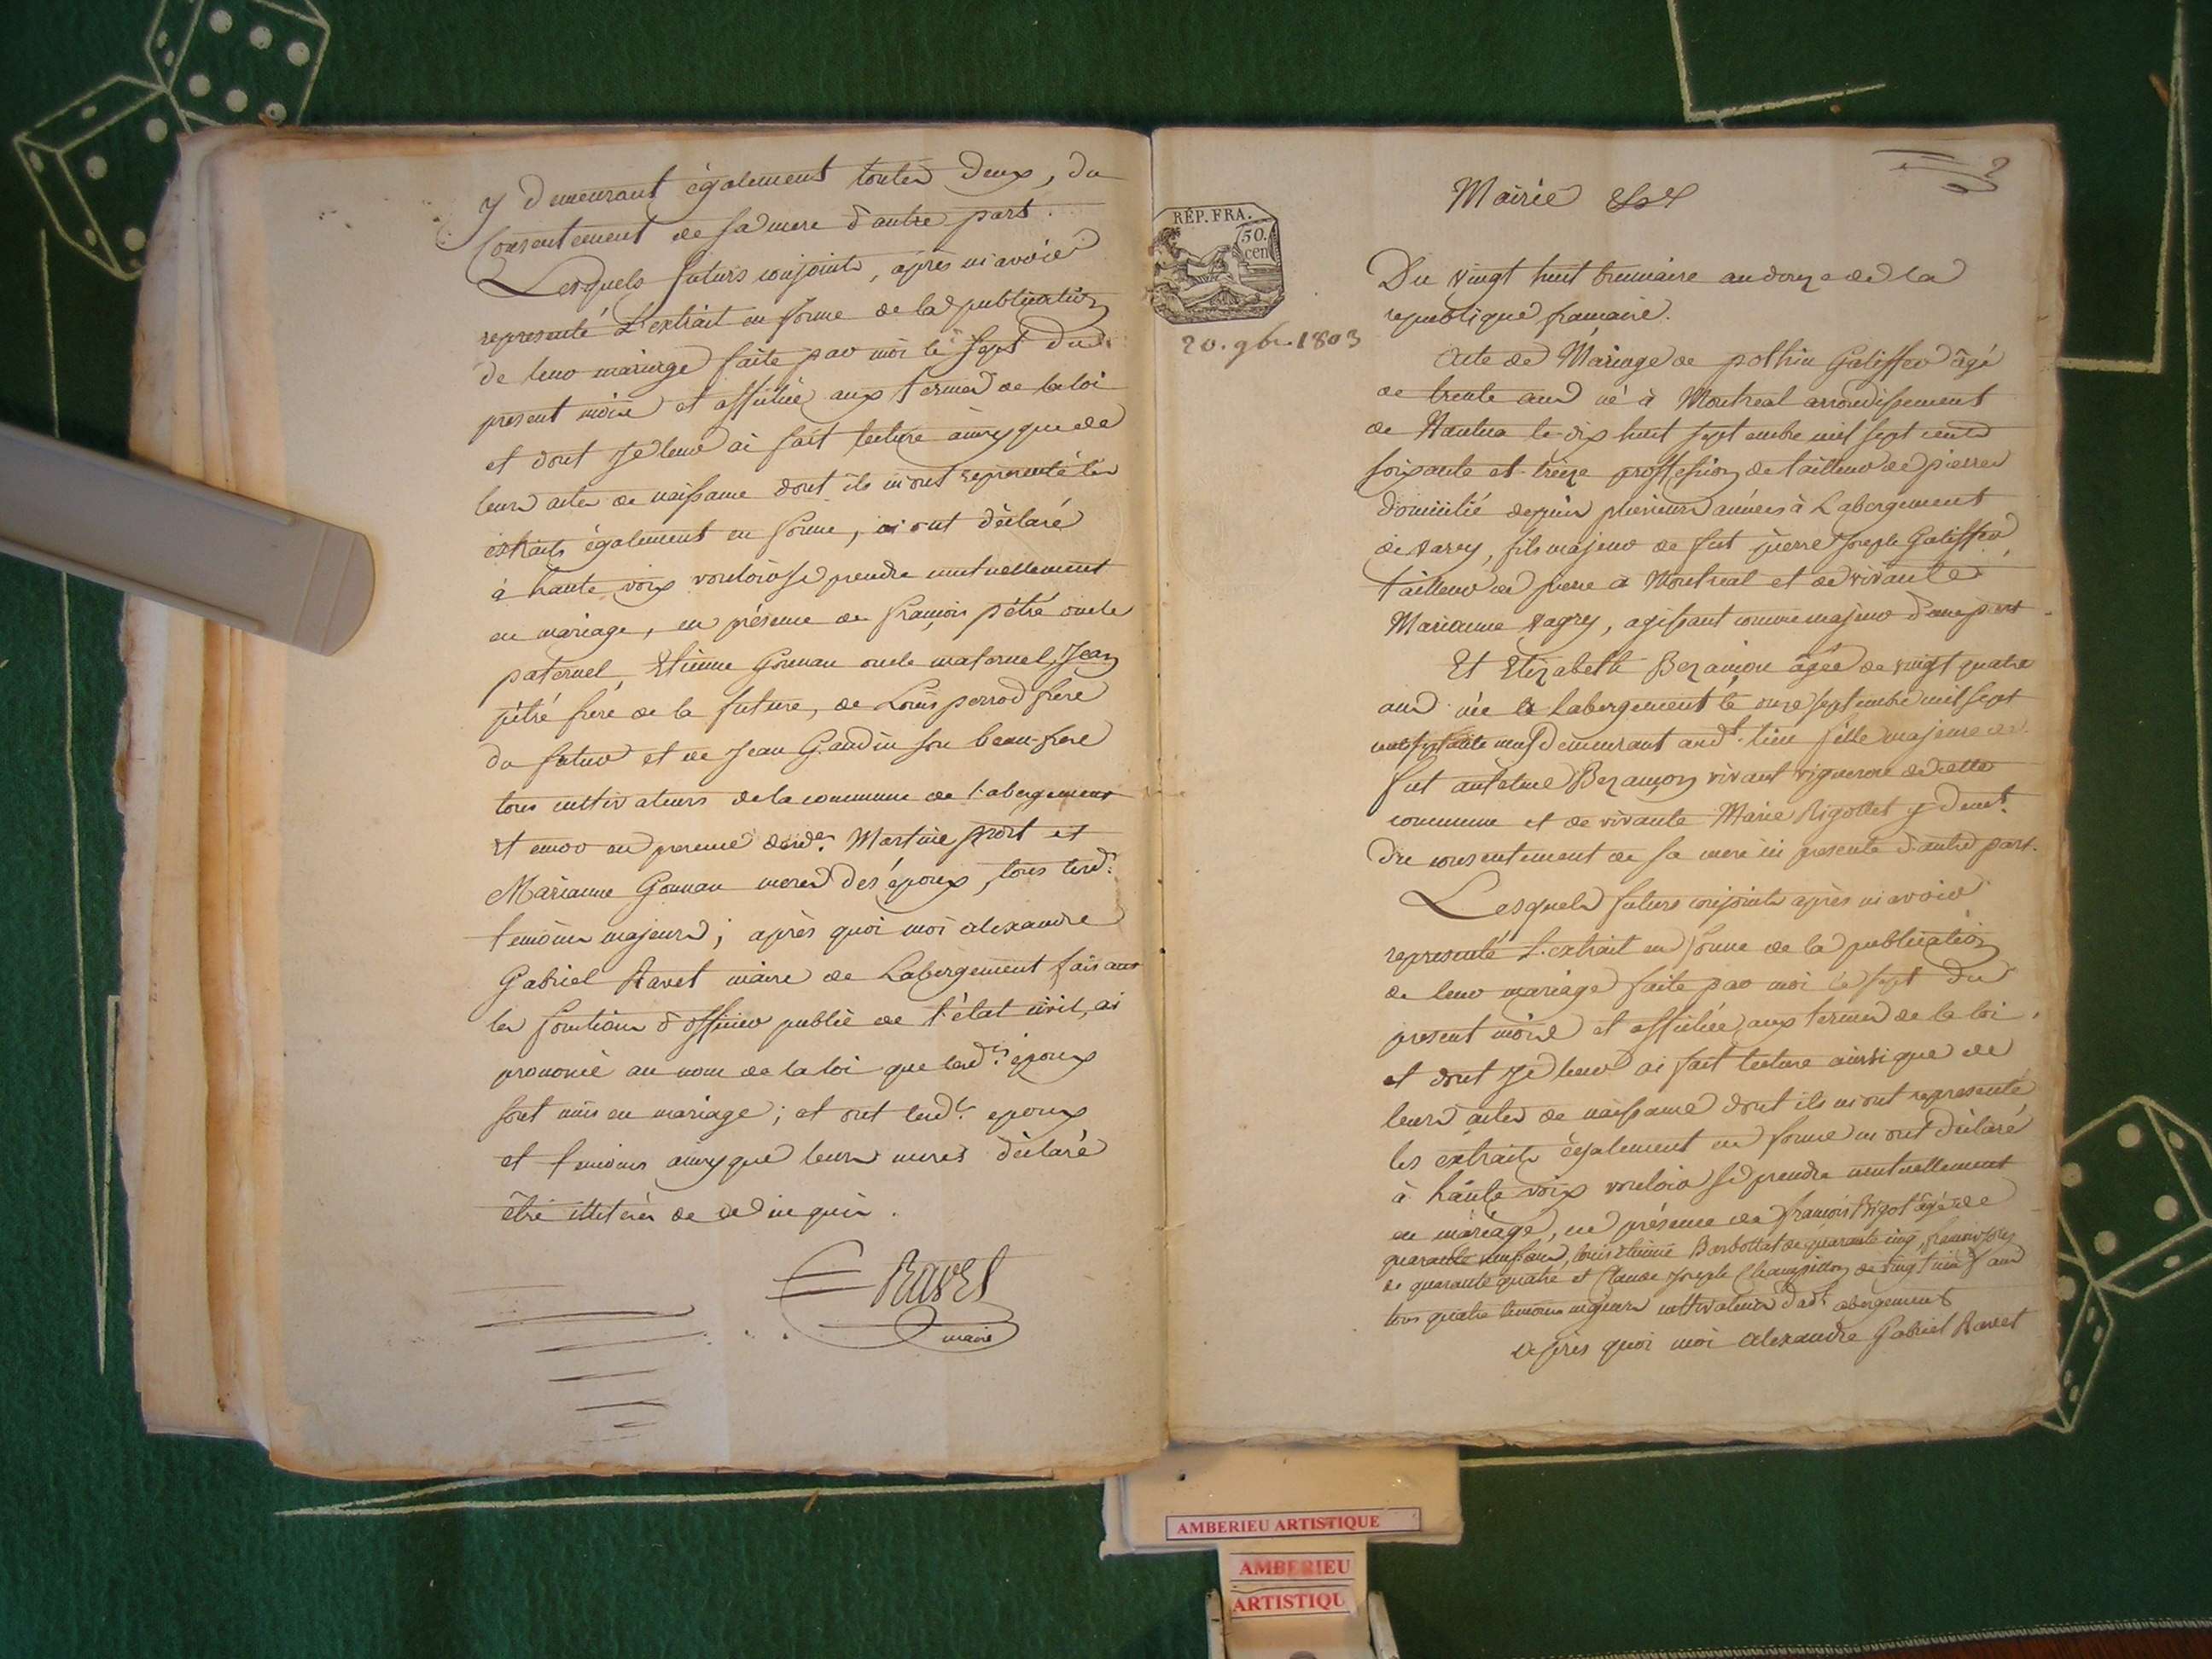 y demeurant également toutes deux, du
Consentement de sa mere d'autre part.
Lesquels futurs conjoints, après m'avoir
representé L'extrait en forme de la publication
de leur mariage faite par moi le sept du
present mois et affichée aux termes de la loi
et dont Je leur ai fait lecture ainsy que de
leurs actes de naissance dont ils m'ont representé les
extraits également en forme, m'ont déclaré
à haute voix vouloir se prendre mutuellement
en mariage, en présence de françois pétré oncle
paternel, Etienne Gounau oncle maternel, Jean
pétré frere de la future, de Louis perrod frere
du futur et de Jean Gaudin son beau-frere
tous cultivateurs de la commune de l'abergement
et encor en presence desd.es Martine prost et
Marianne Gounau meres des époux, tous lesd.
temoins majeurs; après quoi moi alexandre
Gabriel Ravet maire de Labergement faisant
les fonctions d'officier public de l'état civil, ai
prononcé au nom de la loi que lesd.ts époux
sont unis en mariage; et ont lesd.ts epoux
et temoins ainsy que leurs meres déclaré
être illiterés de ce enquis.
Ravet
maire
2
Mairie &&
RÉP. FRA.
50.
cen
20. 9bre 1803
Du vingt huit brumaire an douze de la
republique francaise.
Acte de Mariage de pothin Galiffer âgé
de trente ans né à Montreal arrondissement
de Nantua le dix huit septembre mil sept cents
soixante et treize proffession de tailleur de pierres
domicilié depuis plusieurs années à Labergement
de varey, fils majeur de fut pierre Joseph Galiffer,
tailleur de pierre à Montreal et de vivante
Marianne vagry, agissant comme majeur d'une part
Et Elizabeth Bezançon âgée de vingt quatre
ans née à Labergement le onze septembre mil sept
cent septante neuf demeurant aud.t lieu fille majeure de
fut antelme Bezançon vivant vigneron de cette
commune et de vivante Marie Rigollet y demt.
du consentement de sa mere ici presente d'autre part.
Lesquels futurs conjoints après m'avoir
representé L'extrait en forme de la publication
de leur mariage faite par moi le sept du
present mois et affichée aux termes de la loi,
et dont Je leur ai fait lecture ainsi que de
leurs actes de naissance dont ils m'ont representé
les extraits également en forme m'ont déclaré
à haute voix vouloir se prendre mutuellement
en mariage, en présence de françois Bigot âgé de
quarante neuf ans, Louis Etienne Barbollat de quarante cinq, francois
de quarante quatre et Claude Joseph Champion de vingt neuf ans
tous quatre temoins majeurs cultivateurs dud.t abergement
après quoi moi Alexandre Gabriel Ravet
AMBERIEU ARTISTIQUE
AMBERIEU
ARTISTIQU